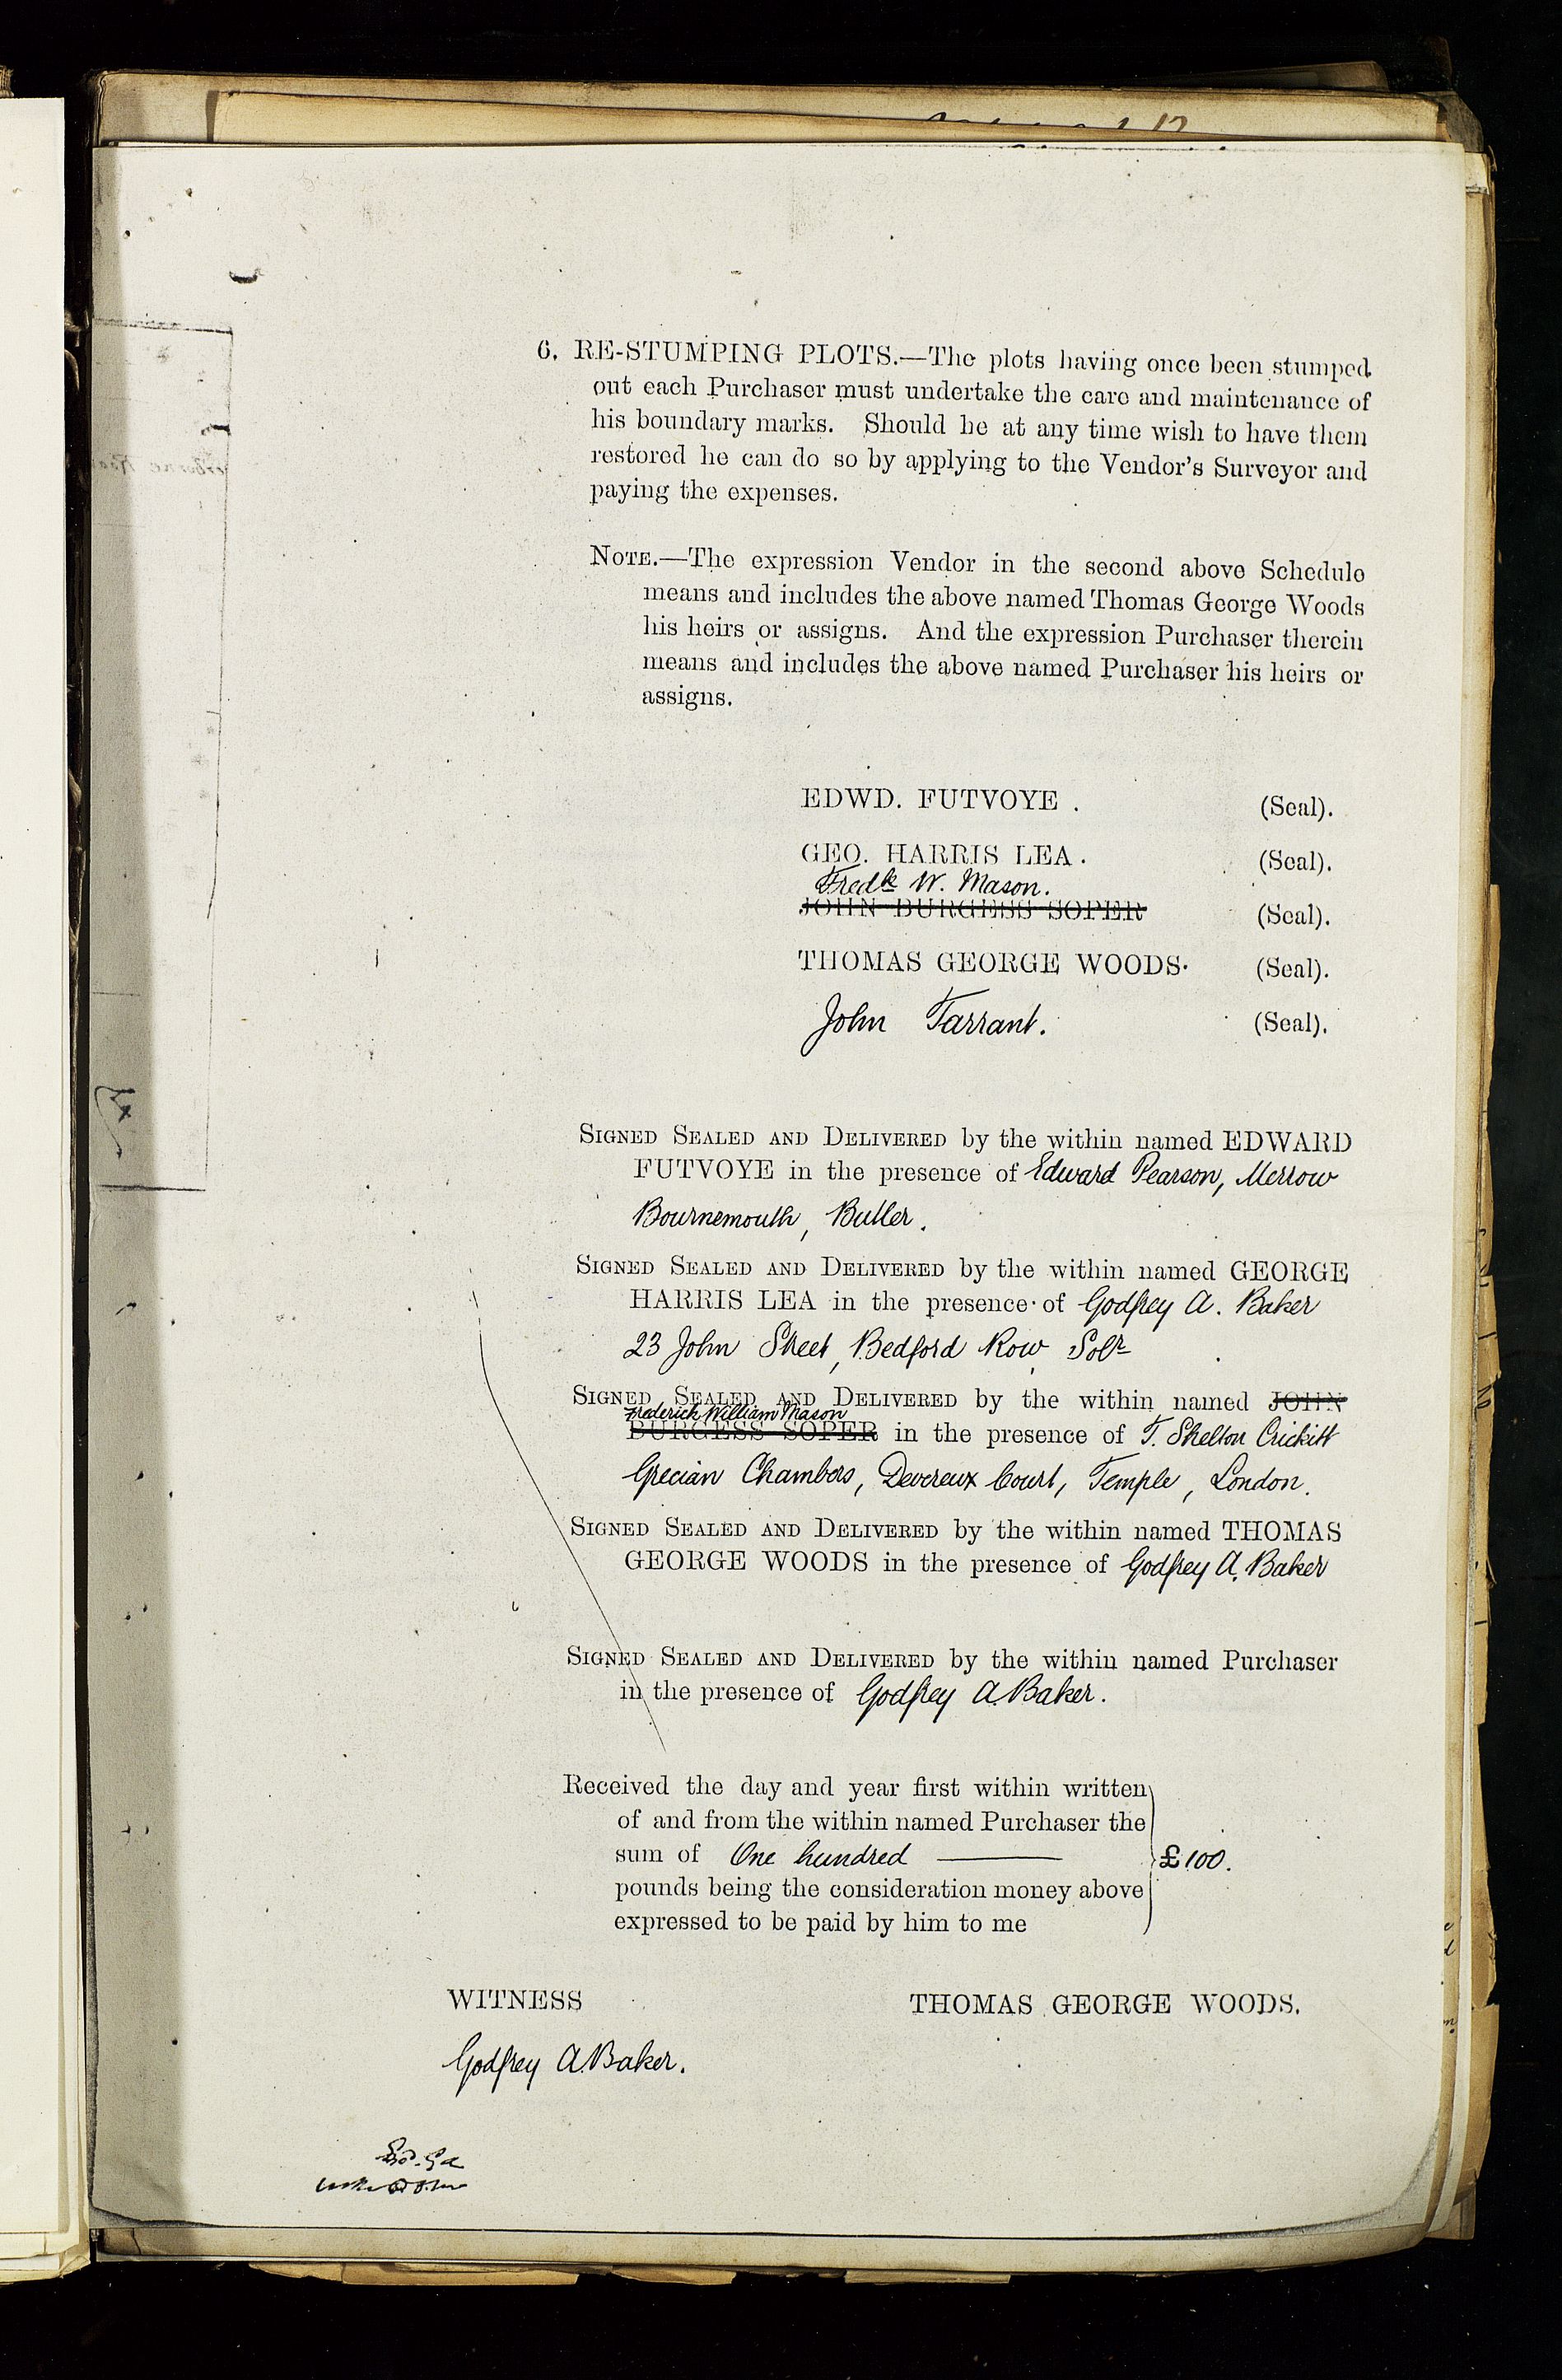 6. RE-STUMPING PLOTS.—The plots having once been stumped
out each Purchaser must undertake the care and maintenance of
his boundary marks. Should he at any time wish to have them
restored he can do so by applying to the Vendor's Surveyor and
paying the expenses.
NOTE.—The expression Vendor in the second above Schedule
means and includes the above named Thomas George Woods
his heirs or assigns. And the expression Purchaser therein
means and includes the above named Purchaser his heirs or
assigns.
EDWD. FUTVOYE. (Seal).
GEO. HARRIS LEA. (Seal).
Fredk W. Mason.
JOHN BURGESS SOPER (Seal).
THOMAS GEORGE WOODS. (Seal).
John Tarrant. (Seal).
SIGNED SEALED AND DELIVERED by the within named EDWARD
FUTVOYE in the presence of Edward Pearson, Merrow
Bournemouth, Butler.
SIGNED SEALED AND DELIVERED by the within named GEORGE
HARRIS LEA in the presence of Godfrey A. Baker
23 John Street, Bedford Row, Solr
SIGNED SEALED AND DELIVERED by the within named JOHN
Frederick William Mason
BURGESS SOPER in the presence of T. Shelton Crickitt
Grecian Chambers, Devereux Court, Temple, London.
SIGNED SEALED AND DELIVERED by the within named THOMAS
GEORGE WOODS in the presence of Godfrey A. Baker
SIGNED SEALED AND DELIVERED by the within named Purchaser
in the presence of Godfrey A. Baker.
Received the day and year first within written
of and from the within named Purchaser the
sum of One hundred —— £100.
pounds being the consideration money above
expressed to be paid by him to me
WITNESS THOMAS GEORGE WOODS.
Godfrey A. Baker.